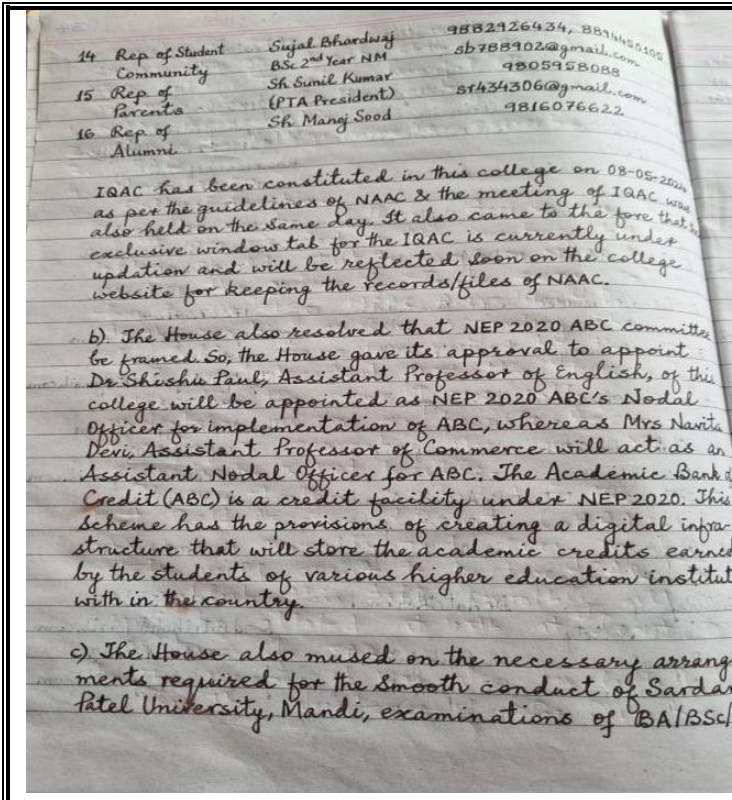 14 Rep of Student Sujal Bhardwaj 9882926434, 8894450105
Community BSc 2nd Year NM sb788902@gmail.com
15 Rep of Sh Sunil Kumar 9805958088
Parents (PTA President) st434306@gmail.com
16 Rep of Sh Manoj Sood 9816076622
Alumni
IQAC has been constituted in this college on 08-05-2024
as per the guidelines of NAAC & the meeting of IQAC was
also held on the same day. It also came to the fore that
exclusive window tab for the IQAC is currently under
updation and will be reflected soon on the college
website for keeping the records/files of NAAC.
b). The House also resolved that NEP 2020 ABC committee
be framed. So, the House gave its approval to appoint
Dr. Shishu Paul, Assistant Professor of English, of this
college will be appointed as NEP 2020 ABC's Nodal
Officer for implementation of ABC, whereas Mrs Navita
Devi, Assistant Professor of Commerce will act as an
Assistant Nodal Officer for ABC. The Academic Bank of
Credit (ABC) is a credit facility under NEP 2020. This
Scheme has the provisions of creating a digital infra-
structure that will store the academic credits earned
by the students of various higher education institut
with in the country.
c) The House also mused on the necessary arrang
ments required for the smooth conduct of Sardar
Patel University, Mandi, examinations of BA/BSc/